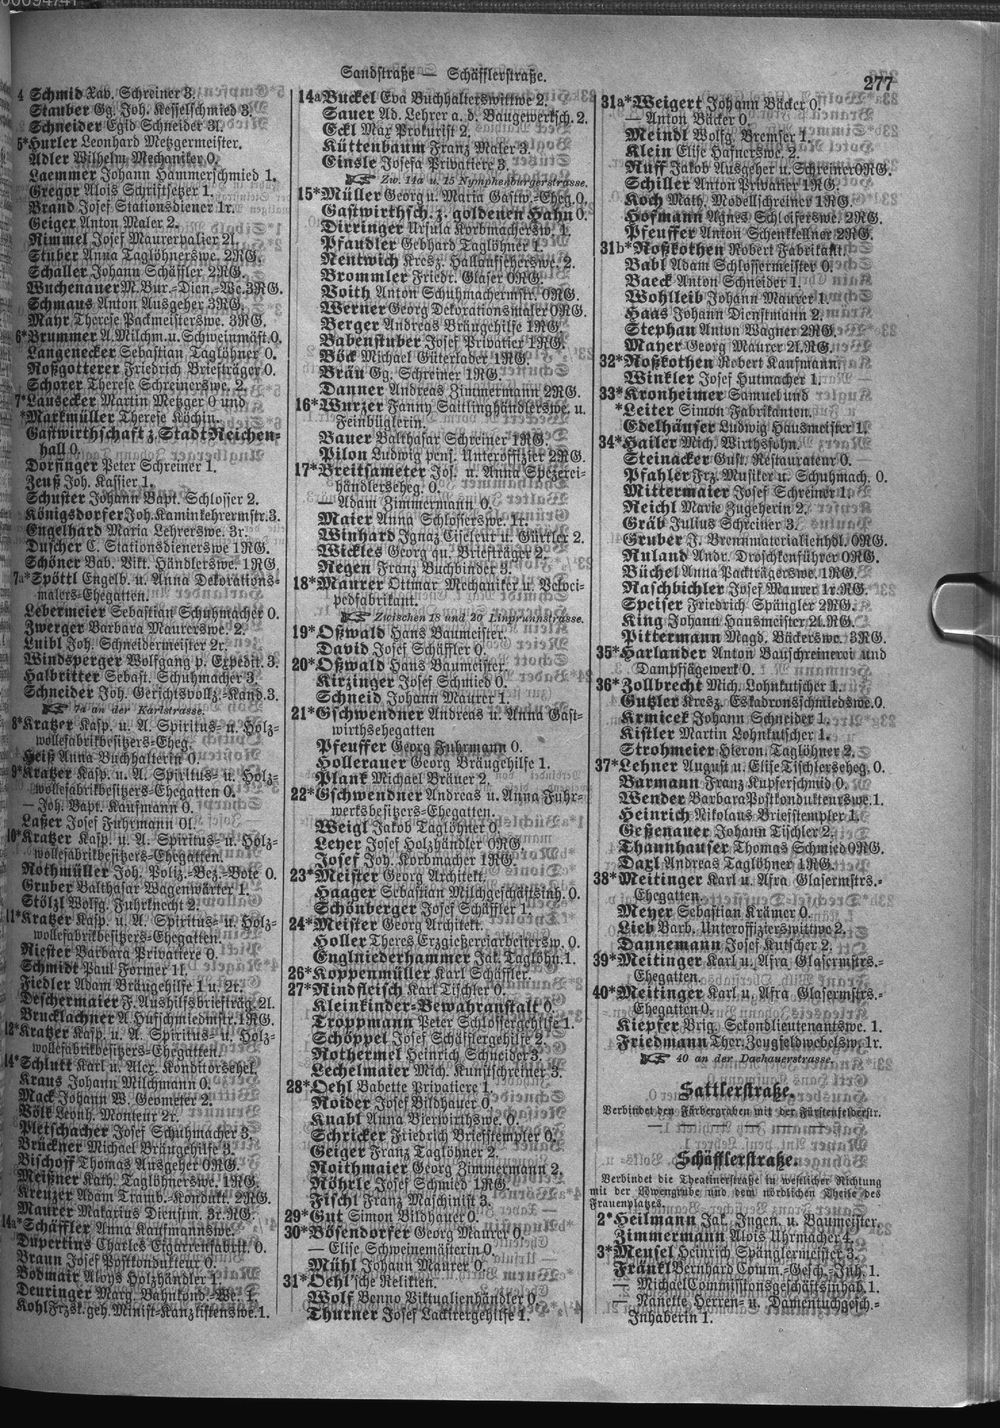 Sandstraße — Schäfflerstraße.
277
4 Schmid Xav. Schreiner 3.
Stauber Gg. Joh. Kesselschmied 3.
Schneider Egid Schneider 3l.
5*Hurler Leonhard Metzgermeister.
Adler Wilhelm Mechaniker 0.
Laemmer Johann Hammerschmied 1.
Gregor Alois Schriftsetzer 1.
Brand Josef Stationsdiener 1r.
Geiger Anton Maler 2.
Rimmel Josef Maurerpalier 2l.
Stuber Anna Taglöhnerswe. 2RG.
Schaller Johann Schäffler 2RG.
Wuchenauer M. Bur.-Dien.-We. 3RG.
Schmaus Anton Ausgeher 3RG.
Mayr Therese Packmeisterswe. 3RG.
6*Brummer A. Milchm. u. Schweinmäst. 0.
Langenecker Sebastian Taglöhner 0.
Roßgotterer Friedrich Briefträger 0.
Schorer Therese Schreinerswe. 2.
7*Lausecker Martin Metzger 0 und
*Markmüller Therese Köchin.
Gastwirthschaft z. Stadt Reichen-
hall 0.
Dorfinger Peter Schreiner 1.
Zeuß Joh. Kassier 1.
Schuster Johann Bapt. Schlosser 2.
Königsdorfer Joh. Kaminkehrermstr. 3.
Engelhard Maria Lehrerswe. 3r.
Duscher C. Stationsdienerswe 1RG.
Schöner Bab. Vikt. Händlerswe. 1RG.
7a*Spöttl Engelb. u. Anna Dekorations-
malers-Ehegatten.
Lebermeier Sebastian Schuhmacher 0.
Zwerger Barbara Maurerswe. 2.
Luibl Joh. Schneidermeister 2r.
Windsperger Wolfgang p. Expedit. 3.
Halbritter Sebast. Schuhmacher 3.
Schneider Joh. Gerichtsvollz.-Kand. 3.
☞ 7a an der Karlstrasse.
8*Kratzer Kasp. u. A. Spiritus- u. Holz-
wollefabrikbesitzers-Eheg.
Heiß Anna Buchhalterin 0.
9*Kratzer Kasp. u. A. Spiritus- u. Holz-
wollefabrikbesitzers-Ehegatten 0.
— Joh. Bapt. Kaufmann 0.
Laßer Josef Fuhrmann 0l.
10*Kratzer Kasp. u. A. Spiritus- u. Holz-
wollefabrikbesitzers-Ehegatten.
Rothmüller Joh. Poliz.-Bez.-Bote 0.
Gruber Balthasar Wagenwärter 1.
Stölzl Wolfg. Fuhrknecht 2.
11*Kratzer Kasp. u. A. Spiritus- u. Holz-
wollefabrikbesitzers-Ehegatten.
Riester Barbara Privatiere 0.
Schmidt Paul Former 1l.
Fiedler Adam Bräugehilfe 1 u. 2r.
Deschermaier J. Aushilfsbriefträg. 2l.
Brucklachner A. Hufschmiedmstr. 1RG.
12*Kratzer Kasp. u. A. Spiritus- u. Holz-
wollefabrikbesitzers-Ehegatten.
14*Schlutt Karl u. Alex. Konditorsehel.
Kraus Johann Milchmann 0.
Mack Johann W. Geometer 2.
Völk Leonh. Monteur 2r.
Pletschacher Josef Schuhmacher 3.
Brückner Michael Bräugehilfe 3.
Bischoff Thomas Ausgeher 0RG.
Meißner Kath. Taglöhnerswe. 1RG.
Krenzer Adam Tramb.-Kondukt. 2RG.
Maurer Makarius Dienstm. 3r. RG.
14a*Schäffler Anna Kaufmannswe.
Dupertins Charles Cigarrenfabrik. 0.
Braun Josef Postkondukteur 0.
Bodmair Aloys Holzhändler 1.
Deuringer Marg. Bahnkond.-We. 1.
Kohl Frzsk. geh. Minist-Kanzlistenswe. 1.
14a Buckel Eva Buchhalterswittwe 2.
Sauer Ad. Lehrer a. d. Baugewerksch. 2.
Eckl Max Prokurist 2.
Küttenbaum Franz Maler 3.
Einsle Josefa Privatiere 3.
☞ Zw. 14a u. 15 Nymphenburgerstrasse.
15*Müller Georg u. Maria Gastw.-Eheg. 0.
Gastwirthsch. z. goldenen Hahn 0.
Dirringer Ursula Korbmachersw. 1.
Pfaudler Gebhard Taglöhner 1.
Nentwich Kresz. Hallaufschersw. 2.
Brommler Friedr. Glaser 0RG.
Voith Anton Schuhmachermstr. 0RG.
Werner Georg Dekorationsmaler 0RG.
Berger Andreas Bräugehilfe 1RG.
Babenstuber Josef Privatier 1RG.
Böck Michael Güterlader 1RG.
Bräu Gg. Schreiner 1RG.
Danner Andreas Zimmermann 2RG.
16*Wurzer Fanny Saitlinghändlerswe. u.
Feinbüglerin.
Bauer Balthasar Schreiner 1RG.
Pilon Ludwig pens. Unteroffizier 2RG.
17*Breitsameter Jos. u. Anna Spezerei-
händlerseheg. 0.
Adam Zimmermann 0.
Maier Anna Schlosserswe. 1r.
Winhard Ignaz Ciseleur u. Gürtler 2.
Wickles Georg qu. Briefträger 2.
Regen Franz Buchbinder 3.
18*Maurer Ottmar Mechaniker u. Veloci-
pedfabrikant.
☞ Zwischen 18 und 20 Linprunnstrasse.
19*Oßwald Hans Baumeister.
David Josef Schäffler 0.
20*Oßwald Hans Baumeister.
Kirzinger Josef Schmied 0.
Schneid Johann Maurer 1.
21*Gschwendner Andreas u. Anna Gast-
wirthsehegatten
Pfeuffer Georg Fuhrmann 0.
Hollerauer Georg Bräugehilfe 1.
Plank Michael Bräuer 2.
22*Gschwendner Andreas u. Anna Fuhr-
werksbesitzers-Ehegatten.
Weigl Jakob Taglöhner 0.
Leyer Josef Holzhändler 0RG.
Josef Joh. Korbmacher 1RG.
23*Meister Georg Architekt.
Haager Sebastian Milchgeschäftsinh. 0.
Schönberger Josef Schäffler 1.
24*Meister Georg Architekt.
Holler Theres Erzgießereiarbeitersw. 0.
Englniederhammer Jak. Taglöhn. 1.
26*Koppenmüller Karl Schäffler.
27*Rindfleisch Karl Tischler 0.
Kleinkinder-Bewahranstalt 0.
Troppmann Peter Schlossergehilfe 1.
Schöppel Josef Schäfflergehilfe 2.
Rothermel Heinrich Schneider 3.
Lechelmaier Mich. Kunstschreiner 3.
28*Oehl Babette Privatiere 1.
Roider Josef Bildhauer 0.
Knabl Anna Bierwirthswe. 0.
Schricker Friedrich Briefstempler 0.
Geiger Franz Taglöhner 2.
Roithmaier Georg Zimmermann 2.
Röhrle Josef Schmied 1RG.
Fischl Franz Maschinist 3.
29*Gut Simon Bildhauer 0.
30*Bösendorfer Georg Maurer 0.
— Elise Schweinemästerin 0.
Mühl Johann Maurer 0.
31*Oehl'sche Relikten.
Wolf Benno Viktualienhändler 0.
Thurner Josef Lackirergehilfe 1.
31a*Weigert Johann Bäcker 0.
— Anton Bäcker 0.
Meindl Wolfg. Bremser 1.
Klein Elise Hafnerswe. 2.
Ruff Jakob Ausgeher u. Schreiner 0RG.
Schiller Anton Privatier 1RG.
Koch Math. Modellschreiner 1RG.
Hofmann Agnes Schlosserswe. 2RG.
Pfeuffer Anton Schenkkellner 2RG.
31b*Roßkothen Robert Fabrikant.
Babl Adam Schlossermeister 0.
Baeck Anton Schneider 1.
Wohlleib Johann Maurer 1.
Haas Johann Dienstmann 2.
Stephan Anton Wagner 2RG.
Mayer Georg Maurer 2l. RG.
32*Roßkothen Robert Kaufmann.
Winkler Josef Hutmacher 1.
33*Kronheimer Samuel und
*Leiter Simon Fabrikanten.
Edelhäuser Ludwig Hausmeister 1.
34*Hailer Mich. Wirthssohn.
Steinacker Gust. Restaurateur 0.
Pfahler Frz. Musiker u. Schuhmach. 0.
Mittermaier Josef Schreiner 1.
Reichl Marie Zugeherin 2.
Gräb Julius Schreiner 3.
Gruber J. Brennmaterialienhdl. 0RG.
Ruland Andr. Droschkenführer 0RG.
Büchel Anna Packträgerswe. 1RG.
Raschbichler Josef Maurer 1r. RG.
Speiser Friedrich Spängler 2RG.
King Johann Hausmeister 2l. RG.
Pittermann Magd. Bäckerswe. 3RG.
35*Harlander Anton Bauschreinerei und
Dampfsägewerk 0.
36*Zollbrecht Mich. Lohnkutscher 1.
Gutzler Kresz. Eskadronsschmiedswe. 0.
Krmicek Johann Schneider 1.
Kistler Martin Lohnkutscher 1.
Strohmeier Hieron. Taglöhner 2.
37*Lehner August u. Elise Tischlerseheg. 0.
Barmann Franz Kupferschmid 0.
Wender Barbara Postkondukteurswe. 1.
Heinrich Nikolaus Briefstempler 1.
Geßenauer Johann Tischler 2.
Thannhauser Thomas Schmied 0RG.
Daxl Andreas Taglöhner 1RG.
38*Meitinger Karl u. Afra Glasermstrs.-
Ehegatten.
Meyer Sebastian Krämer 0.
Lieb Barb. Unteroffizierswittwe 2.
Dannemann Josef Kutscher 2.
39*Meitinger Karl u. Afra Glasermstrs.-
Ehegatten.
40*Meitinger Karl u. Afra Glasermstrs.-
Ehegatten 0.
Kiepfer Brig. Sekondlieutenantswe. 1.
Friedmann Ther. Zeugfeldwebelsw. 1r.
☞ 40 an der Dachauerstrasse.
Sattlerstraße.
Verbindet den Färbergraben mit der Fürstenfelderstr.
Schäfflerstraße.
Verbindet die Theatinerstraße in westlicher Richtung
mit der Löwengrube und dem nördlichen Theile des
Frauenplatzes.
2*Heilmann Jak. Ingen. u. Baumeister.
Zimmermann Alois Uhrmacher 4.
3*Mensel Heinrich Spänglermeister 3.
Fränkl Bernhard Comm.-Gesch.-Inh. 1.
— Michael Commissionsgeschäftsinhab. 1.
— Nanette Herren- u. Damentuchgesch.-
Inhaberin 1.